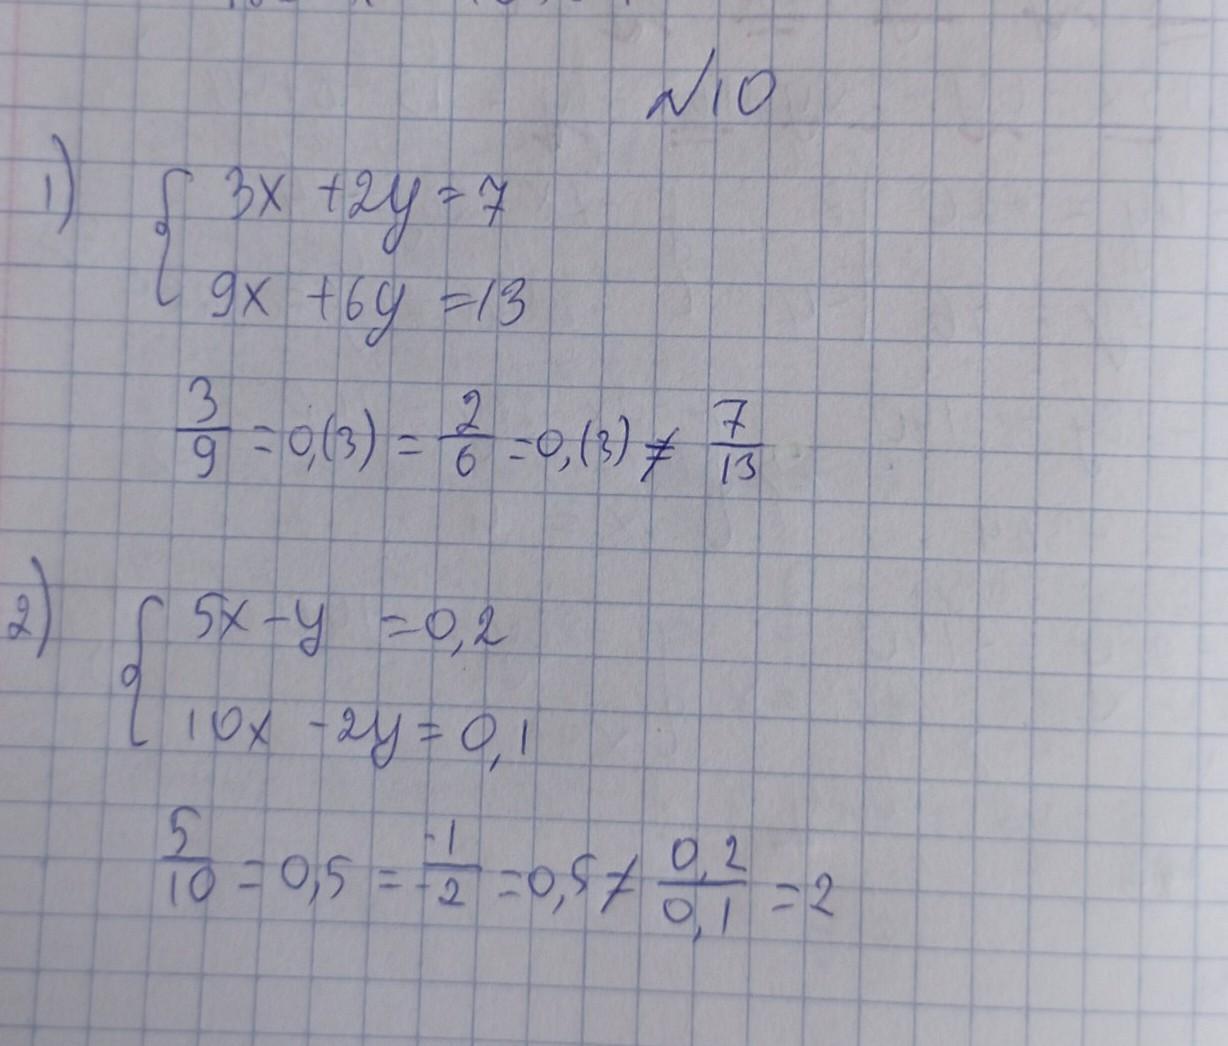 №10
1) { 3x + 2y = 7
9x + 6y = 13
3/9 = 0,(3) = 2/6 = 0,(3) ≠ 7/13
2) { 5x - y = 0,2
10x - 2y = 0,1
5/10 = 0,5 = -1/-2 = 0,5 ≠ 0,2/0,1 = 2